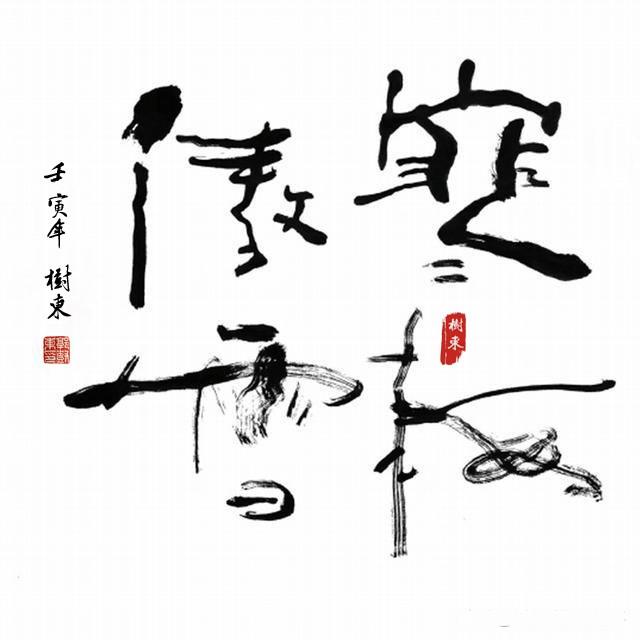 寒梅
傲雪
壬寅年 樹東
樹東